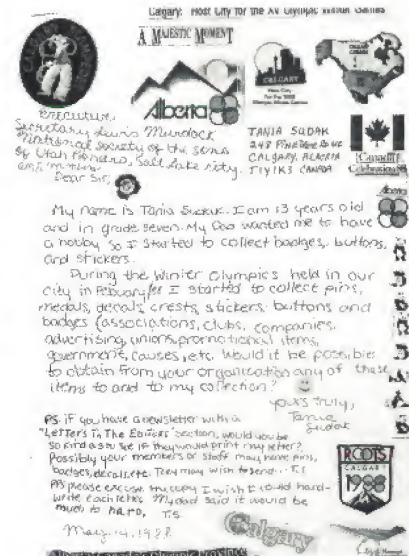 Calgary: Host City for the XV Olympic Winter Games
A MAJESTIC MOMENT
Alberta
CALGARY
Executive
Secretary Lewis Murdock
National Society of the Sons
of Utah Pioneers, Salt Lake City.
TANIA SUDAK
CALGARY, ALBERTA
CANADA
Dear Sir,
Alberta
My name is Tania Sudak. I am 13 years old
and in grade seven. My Dad wanted me to have
a hobby so I started to collect badges, buttons,
and stickers.
During the Winter Olympics held in our
city in I started to collect pins,
medals, decals, crests, stickers, buttons and
badges (associations, clubs, companies,
advertising, unions, promotional items,
government, causes, etc. Would it be possible
to obtain from your organization any of these
items to add to my collection?
yours truly,
Tania
Sudak
PS: if you have a newsletter with a
"Letters To The Editors" section, would you be
so kind as to see if they would print my letter?
Possibly your members or staff may have pins,
badges, decals, etc. They may wish to send. T.S
PS please excuse the copy I wish I could hand-
write each letter. My dad said it would be
much to hard, T.S
May 14, 1988
ROOTS
CALGARY
1988
Calgary
Olympic Province